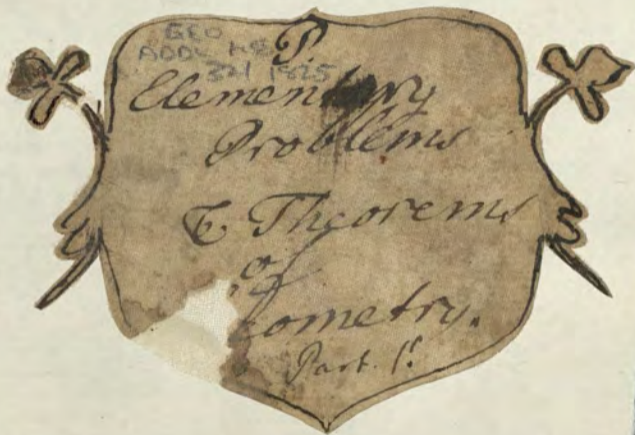 GEO
ADDL MS
321 1825
P.
Elementary
Problems
& Theorems
of
eometry.
Part. 1st